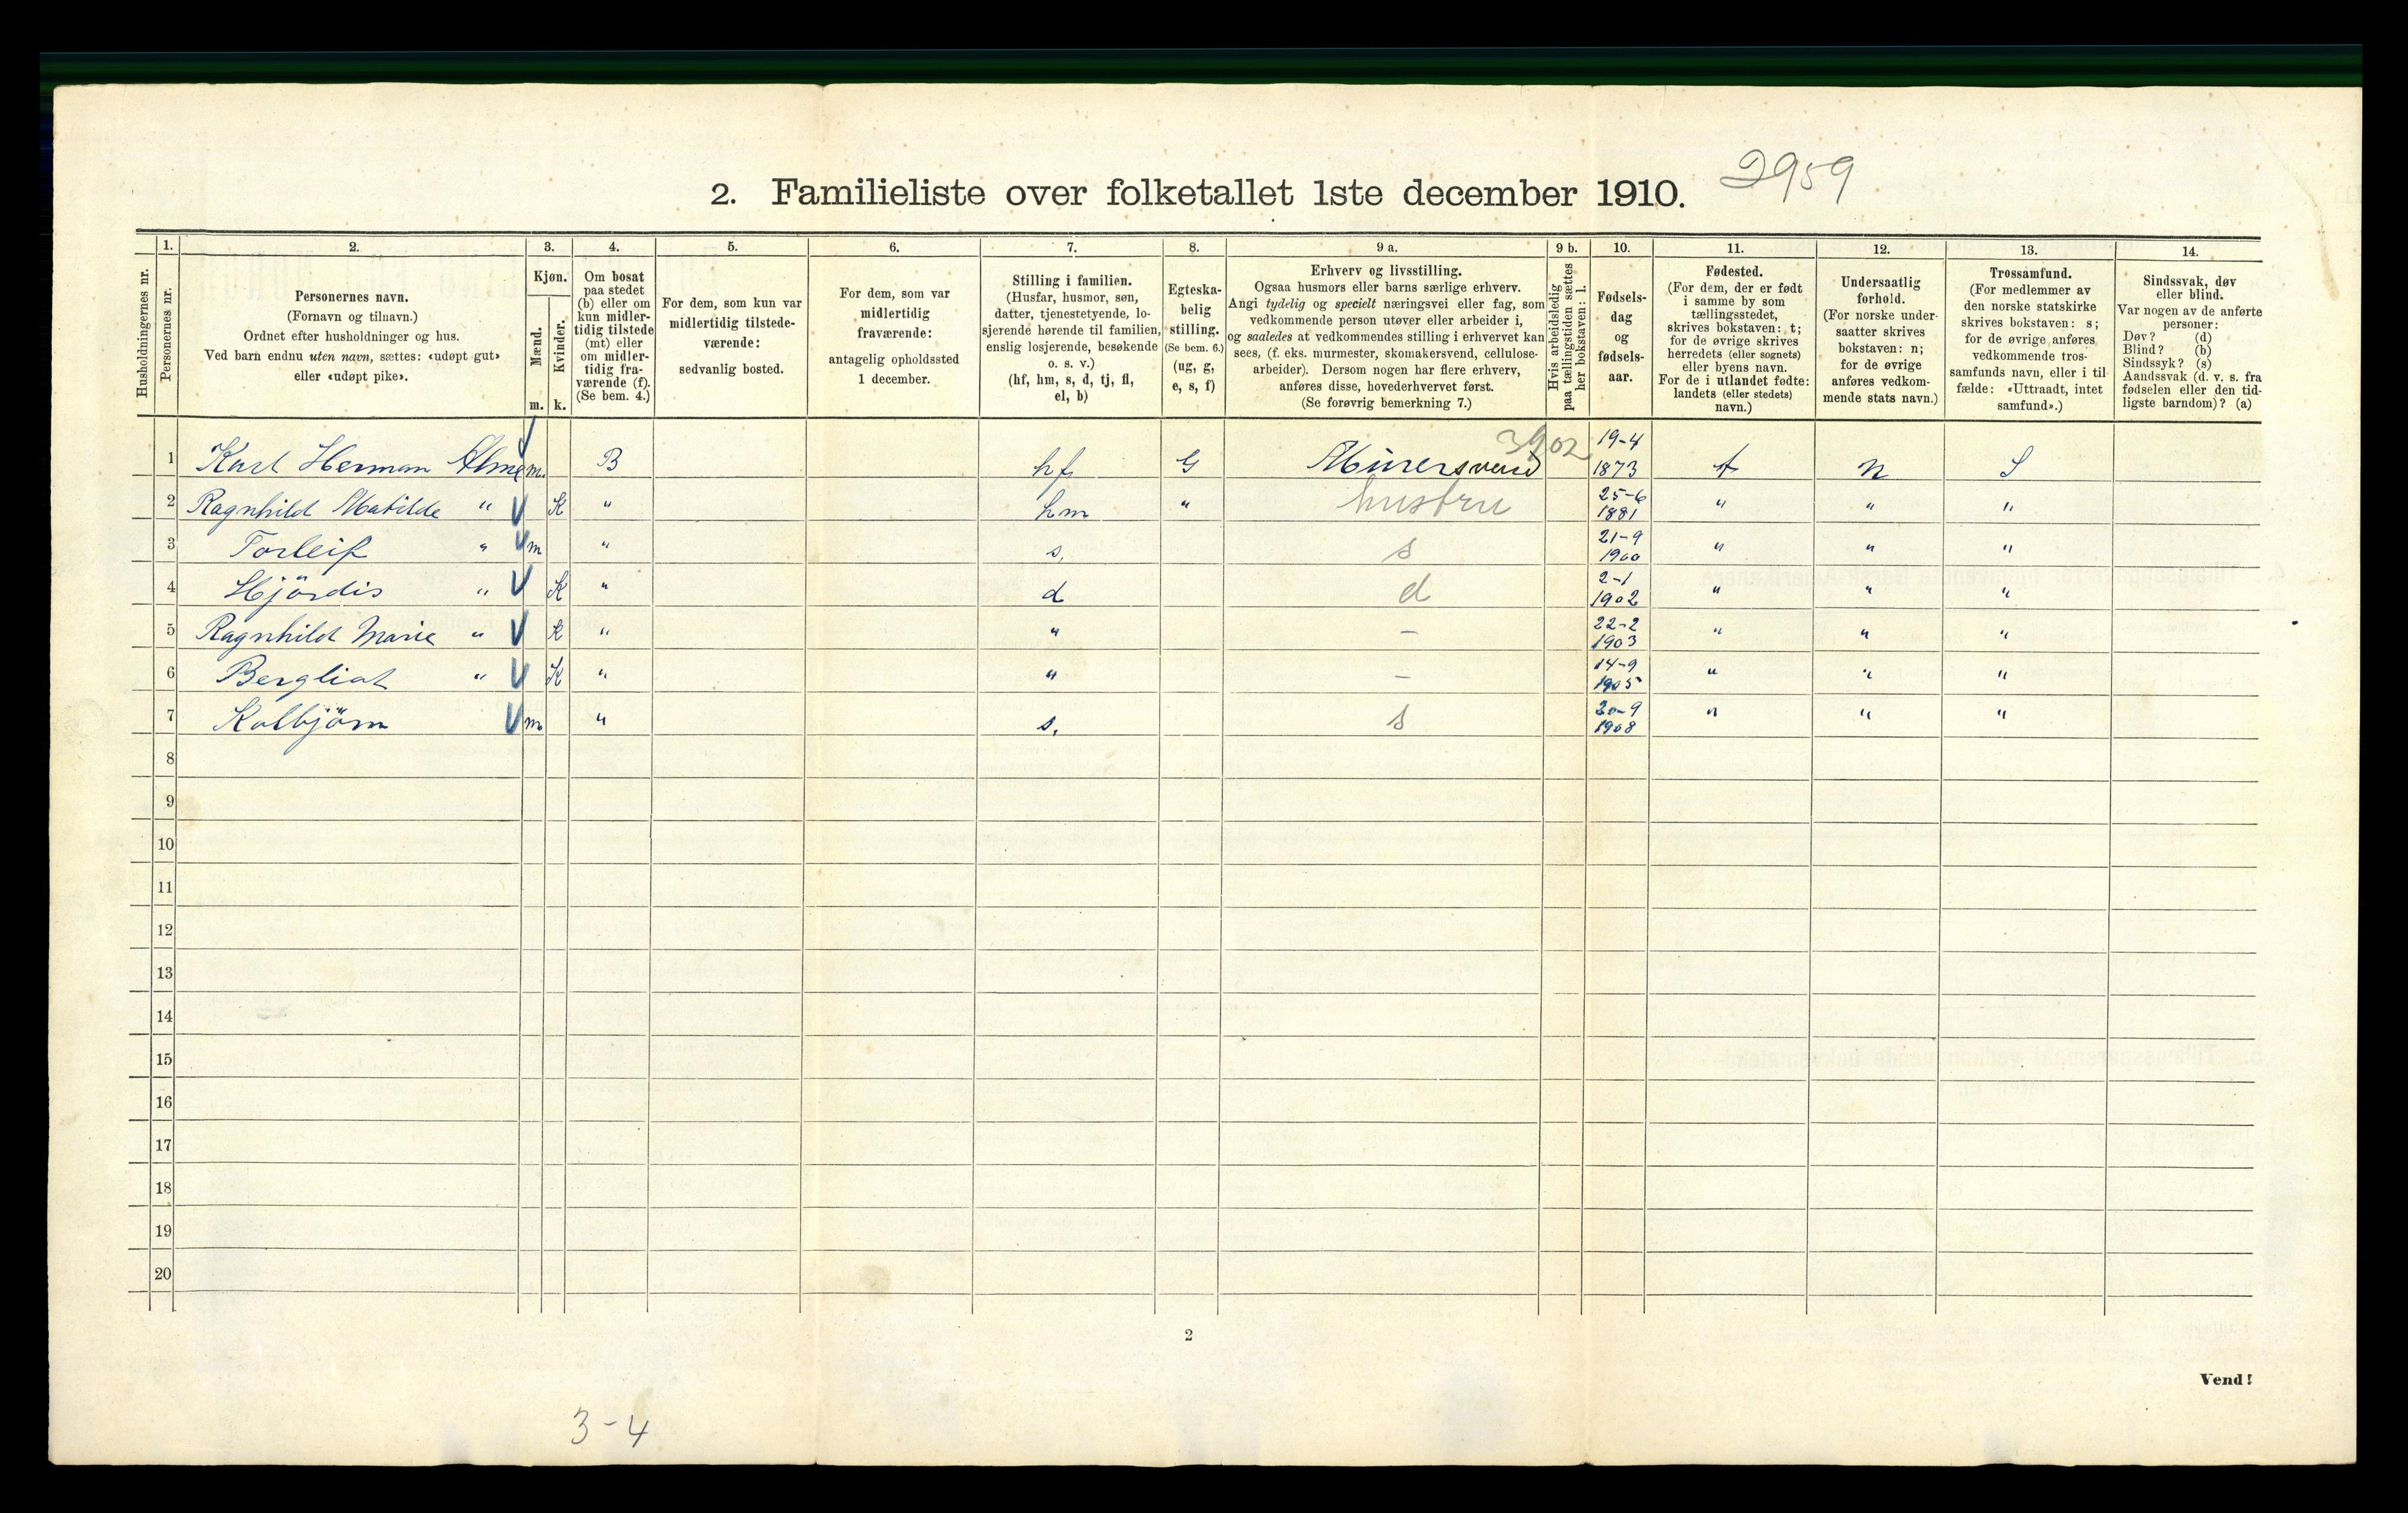 2. Familieliste over folketallet 1ste december 1910. 2959
Husholdningernes nr.
1.
Personernes nr.
2.
Personernes navn.
(Fornavn og tilnavn.)
Ordnet efter husholdninger og hus.
Ved barn endnu uten navn, sættes: «udøpt gut»
eller «udøpt pike».
3.
Kjøn.
Mænd.
m.
Kvinder.
k.
4.
Om bosat
paa stedet
(b) eller om
kun midler-
tidig tilstede
(mt) eller
om midler-
tidig fra-
værende (f).
(Se bem. 4.)
5.
For dem, som kun var
midlertidig tilstede-
værende:
sedvanlig bosted.
6.
For dem, som var
midlertidig
fraværende:
antagelig opholdssted
1 december.
7.
Stilling i familien.
(Husfar, husmor, søn,
datter, tjenestetyende, lo-
sjerende hørende til familien,
enslig losjerende, besøkende
o. s. v.)
(hf, hm, s, d, tj, fl,
el, b)
8.
Egteska-
belig
stilling.
(Se bem. 6.)
(ug, g,
e, s, f)
9 a.
Erhverv og livsstilling.
Ogsaa husmors eller barns særlige erhverv.
Angi tydelig og specielt næringsvei eller fag, som
vedkommende person utøver eller arbeider i,
og saaledes at vedkommendes stilling i erhvervet kan
sees, (f. eks. murmester, skomakersvend, cellulose-
arbeider). Dersom nogen har flere erhverv,
anføres disse, hovederhvervet først.
(Se forøvrig bemerkning 7.)
9 b.
Hvis arbeidsledig
paa tællingstiden sættes
her bokstaven: l.
10.
Fødsels-
dag
og
fødsels-
aar.
11.
Fødested.
(For dem, der er født
i samme by som
tællingsstedet,
skrives bokstaven: t;
for de øvrige skrives
herredets (eller sognets)
eller byens navn.
For de i utlandet fødte:
landets (eller stedets)
navn.)
12.
Undersaatlig
forhold.
(For norske under-
saatter skrives
bokstaven: n;
for de øvrige
anføres vedkom-
mende stats navn.)
13.
Trossamfund.
(For medlemmer av
den norske statskirke
skrives bokstaven: s;
for de øvrige anføres
vedkommende tros-
samfunds navn, eller i til-
fælde: «Uttraadt, intet
samfund».)
14.
Sindssvak, døv
eller blind.
Var nogen av de anførte
personer:
Døv? (d)
Blind? (b)
Sindssyk? (s)
Aandssvak (d. v. s. fra
fødselen eller den tid-
ligste barndom)? (a)
1 Karl Herman m. B hf G Murersvend 3902 19-4 1873 t N S
2 Ragnhild Matilde " K " hm " hustru 25-6 1881 " " "
3 Torleif " m " s. s 21-9 1900 " " "
4 Hjördis " K " d d 2-1 1902 " " "
5 Ragnhild Marie " K " " – 22-2 1903 " " "
6 Bergliot " K " " – 14-9 1905 " " "
7 Kolbjörn m " s. s 20-9 1908 " " "
8
9
10
11
12
13
14
15
16
17
18
19
20
2
Vend!
3-4